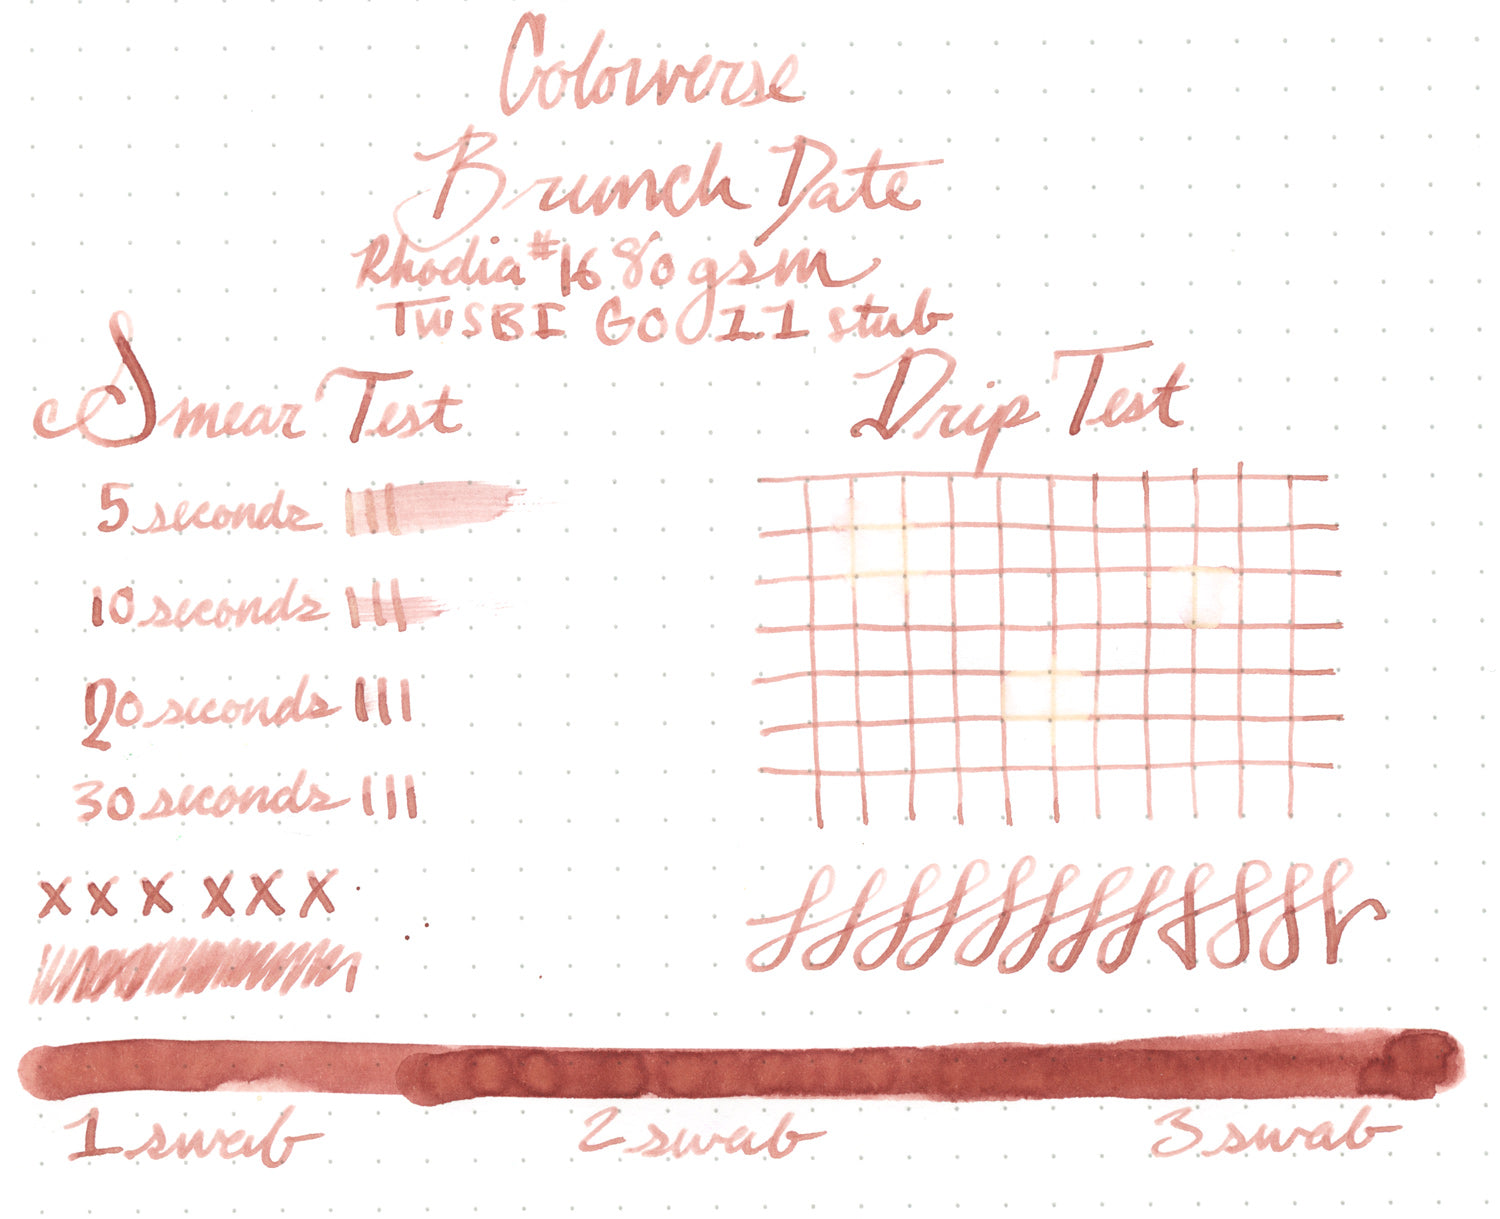 Colorverse
Brunch Date
Rhodia #16 80 gsm
TWSBI GO 1.1 stub
Smear Test
Drip Test
5 seconds
10 seconds
20 seconds
30 seconds
x x x x x x
1 swab
2 swab
3 swab